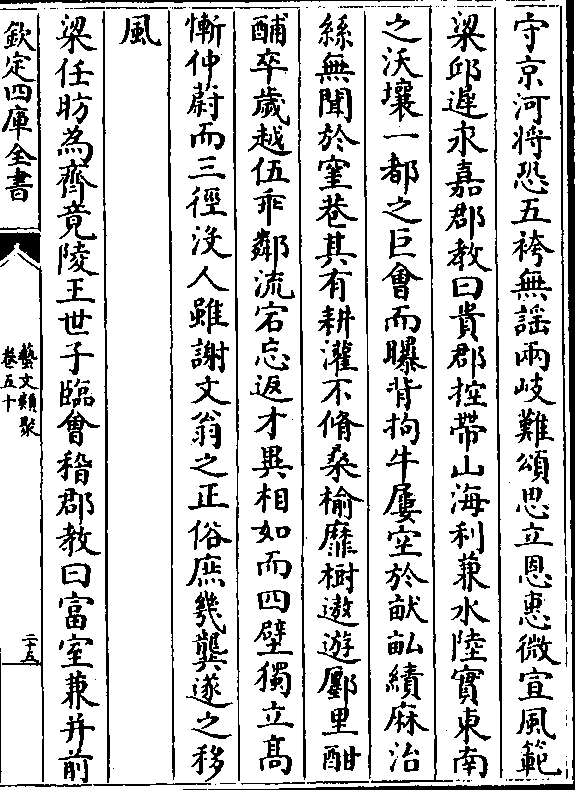 守京河将恐五袴無謡兩岐難頌思立恩惠微宣風範
梁邱遲永嘉郡教曰貴郡控帶山海利兼水陸實東南
之沃壤一都之巨會而曝背拘牛屢空於畎畝績麻治
絲無聞於窐巷其有耕灌不脩桑榆靡樹遨遊鄽里酣
酺卒歲越伍乖鄰流宕忘返才異相如而四壁獨立髙
慚仲蔚而三徑沒人雖謝文翁之正俗庶幾龔遂之移
風
梁任昉為齊竟陵王世子臨會稽郡教曰富室兼并前
欽定四庫全書
藝文類聚
卷五十
二十五